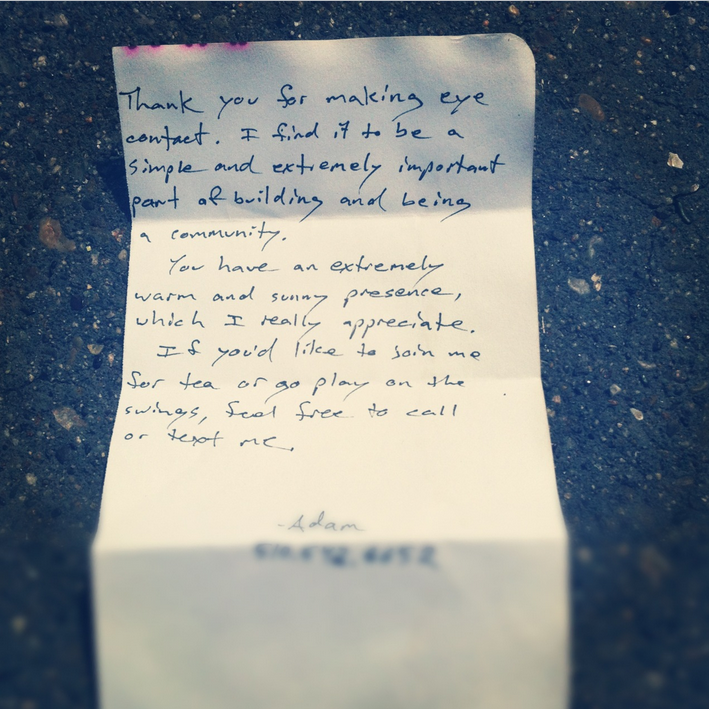 Thank you for making eye
contact. I find it to be a
simple and extremely important
part of building and being
a community.
You have an extremely
warm and sunny presence,
which I really appreciate.
If you'd like to join me
for tea or go play on the
swings, feel free to call
or text me.
-Adam